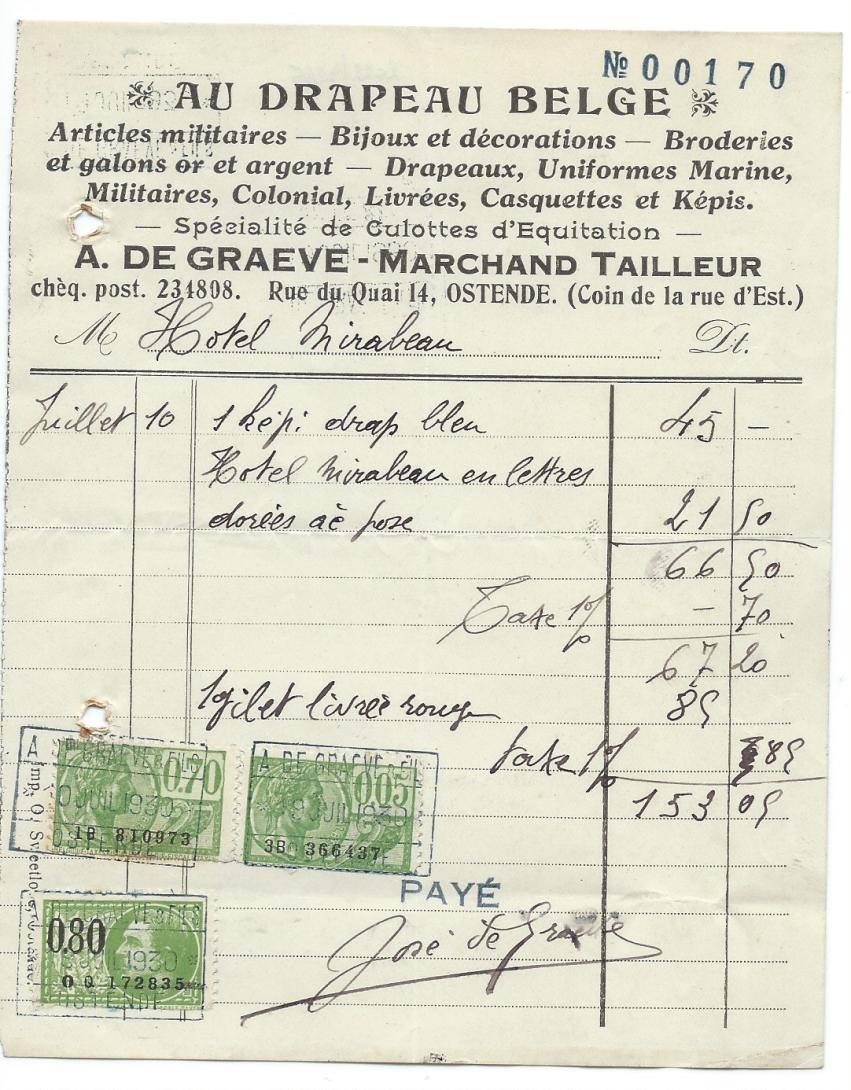 № 00170
AU DRAPEAU BELGE
Articles militaires — Bijoux et décorations — Broderies
et galons or et argent — Drapeaux, Uniformes Marine,
Militaires, Colonial, Livrées, Casquettes et Képis.
— Spécialité de Culottes d'Equitation —
A. DE GRAEVE - MARCHAND TAILLEUR
chèq. post. 234808. Rue du Quai 14, OSTENDE. (Coin de la rue d'Est.)
M Hotel Mirabeau Dt.
Juillet 10 1 képi drap bleu 45 —
Hotel Mirabeau en lettres
dorées àè pose 21 50
66 50
Taxe 1% — 70
67 20
1 gilet livrée rouge 85
taxe 1% 85
153 05
A. DE GRAEVE & FILS
0.70
0 JUIL 1930
1B 810973
OSTENDE
A. DE GRAEVE & FIL
0.05
19 JUIL 1930
3B 366437
PAYÉ
José de Graeve
GRAEVE & FILS
0.80
1930
OQ 172835
OSTENDE